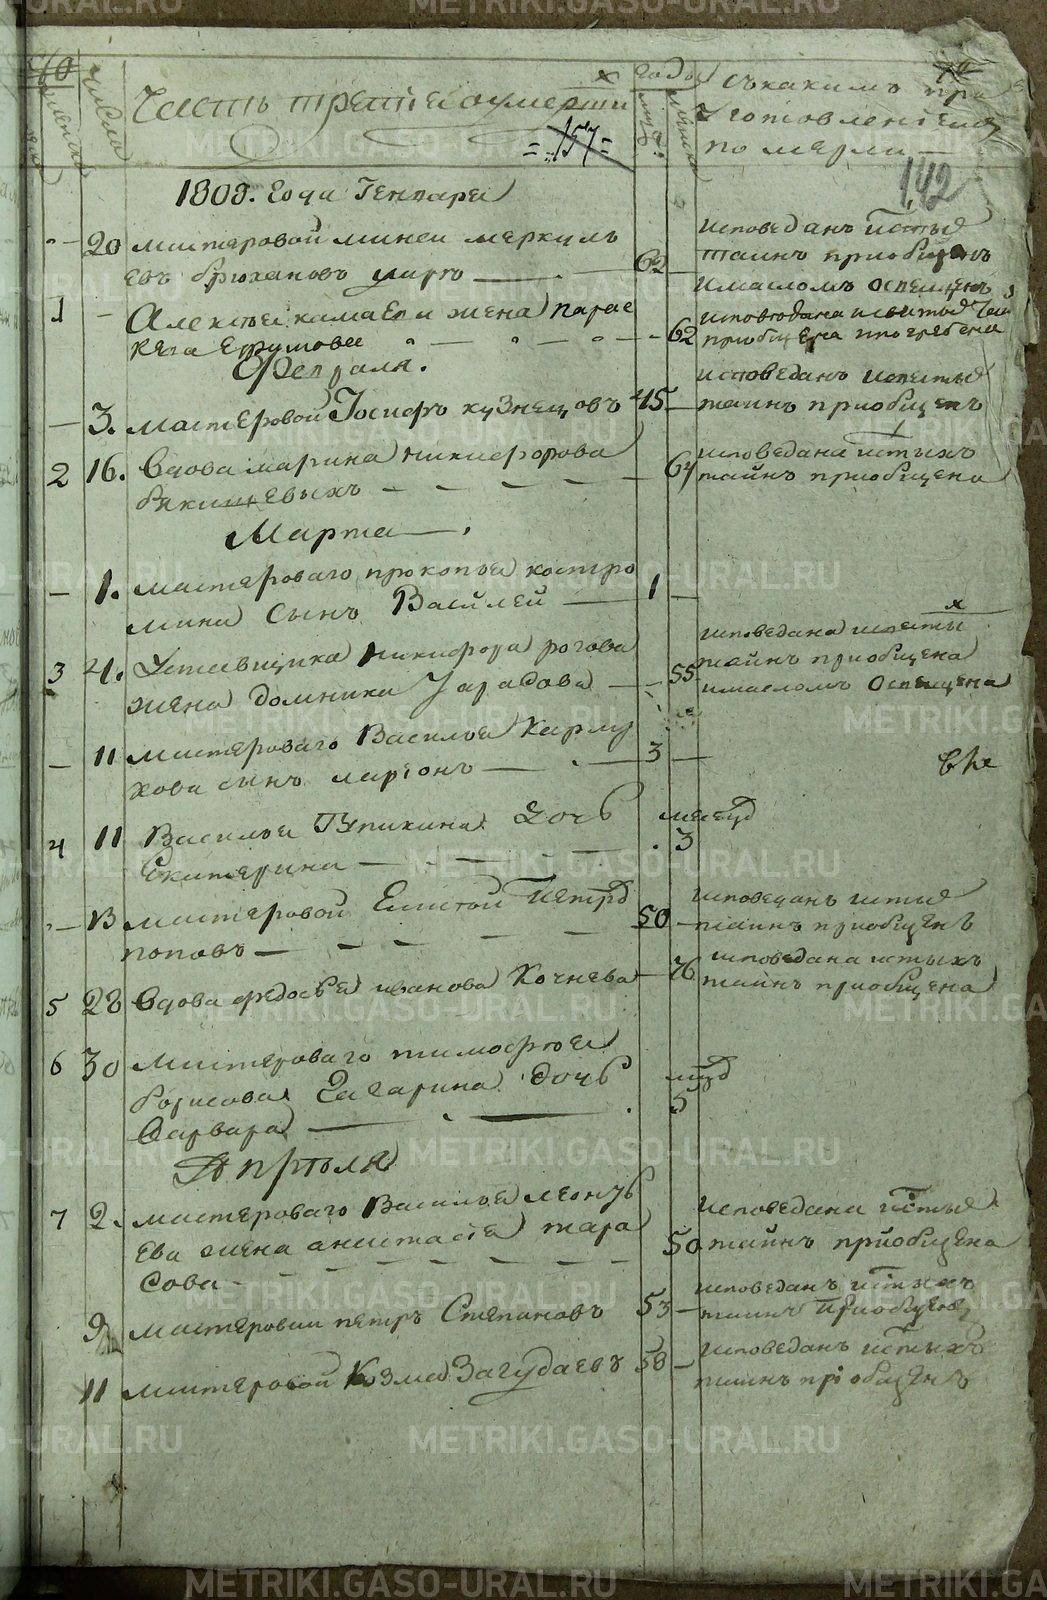 Часть третие о умерши
годы
съ какимъ при
готовлениемъ
померли
=157=
142
1808. года Генваря
20 мастеровой миней меркуль
евъ брюхановъ умре 62
исповеданъ истые
таинъ приобщенъ
имаслом освещенъ
1 Алексея камаева жена парас
кева Ефимова 62
приобщена ипогребена
Февраля.
3. мастеровой Иосифъ кузнецовъ 45
исповеданъ исветые
таинъ приобщенъ
2 16. Вдова марина никифорова 67
исповедана истыхъ
тайнъ приобщена
Марта
1. мастероваго прокопья костро 1
мина сынъ Василей
3 4. Уставщика никифора рогова
жена домника 55
исповедана исветы
тайнъ приобщена
имасломъ освещена
11 мастероваго Василья Карпу
хова сынъ ларионъ 3
4 11 Василья Дочь
Екатерина месяц 3
13 мастеровой петръ
поповъ 50
исповеданъ исты
таинъ приобщенъ
5 28 Вдова федосья иванова Кочнева 76
исповедана истыхъ
тайнъ приобщена
6 30 Мастероваго тимофея
борисова Гагарина дочь
Варвара 5
Апреля
7 2. мастероваго Василья леонть
ева жена анастасия тара
сова 50
исповедана истые
тайнъ приобщена
9 мастеровой петръ Степановъ 53
исповеданъ истыхъ
таинъ приобщенъ
11 мастеровой Козма Загудаевъ 58
исповеданъ истыхъ
таинъ приобщенъ
METRIKI.GASO-URAL.RU